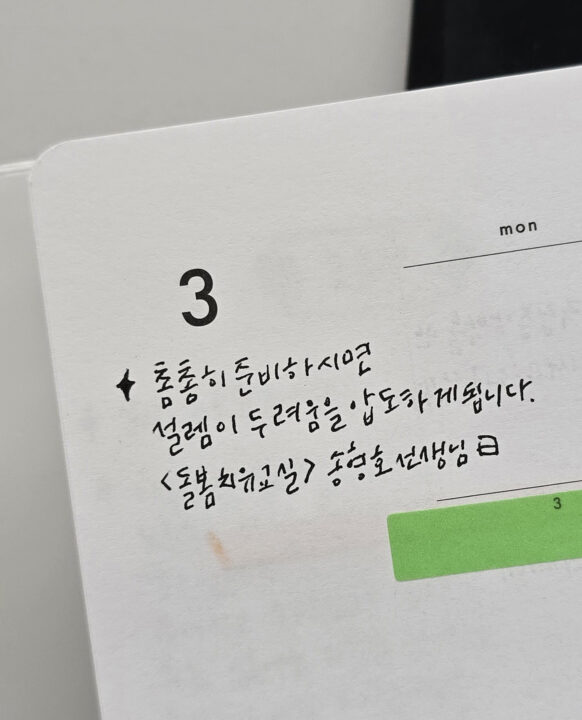 mon
3
✦ 촘촘히 준비하시면
설렘이 두려움을 압도하게됩니다.
<돌봄치유교실> 송형호 선생님 曰
3